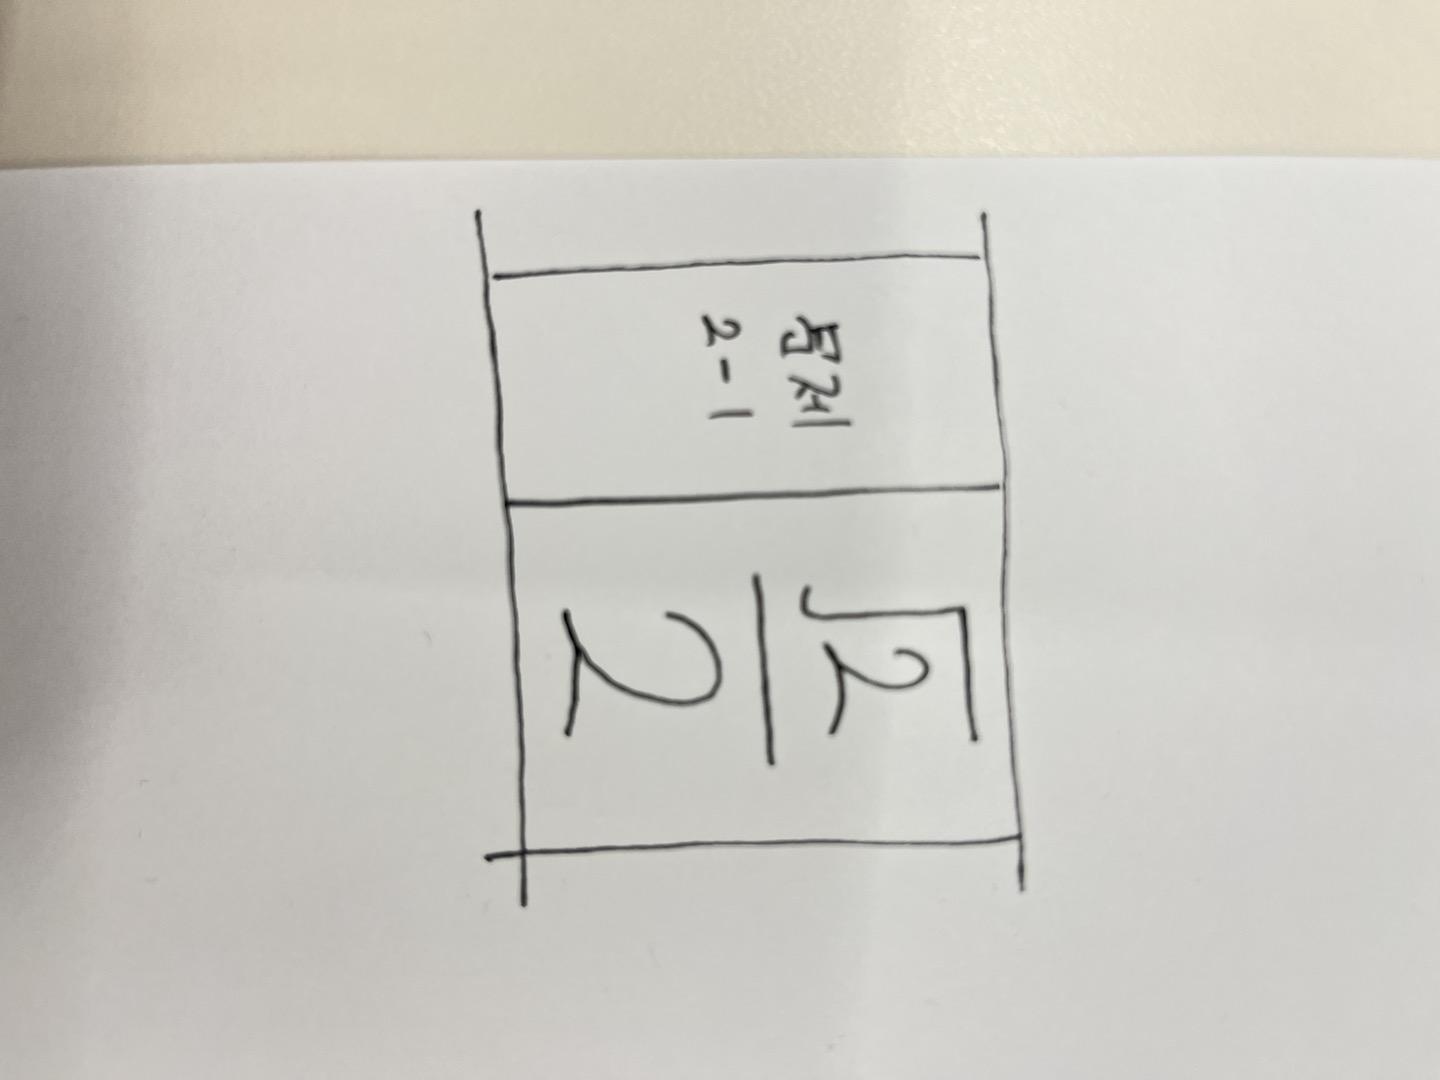 문제
2-1
√2
2